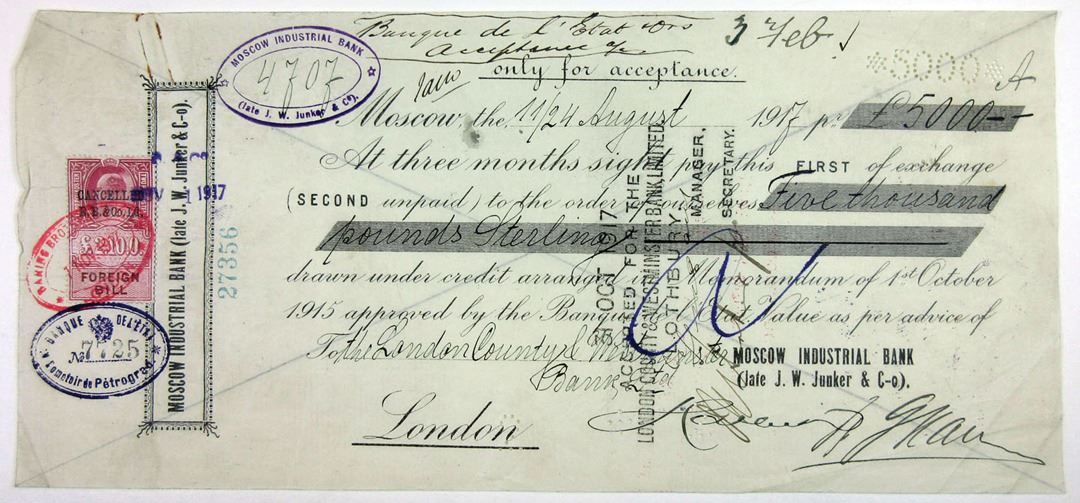 Banque de l'Etat
Acceptance
3 Feb
only for acceptance.
5000
A
MOSCOW INDUSTRIAL BANK
4707
(late J. W. Junker & Co).
Moscow, the 11/24 August 1917 pr £5000--
At three months sight pay this FIRST of exchange
(SECOND unpaid) to the order of ourselves Five thousand
pounds Sterling
drawn under credit arranged in Memorandum of 1st October
1915 approved by the Banque de l'Etat Value as per advice of
To the London County & Westminster
Bank, Ltd
London
MOSCOW INDUSTRIAL BANK
(late J. W. Junker & C-o).
MOSCOW INDUSTRIAL BANK (late J. W. Junker & C-o).
27356
CANCELLED
NOV 1 1917
£2.10.0
FOREIGN
BILL
BARING BROT
BANQUE DE L'ETAT
№ 7725
Comptoir de Pétrograd
31 OCT 1917
ACCEPTED FOR THE
LONDON COUNTY & WESTMINSTER BANK, LIMITED
LOTHBURY
MANAGER.
SECRETARY.